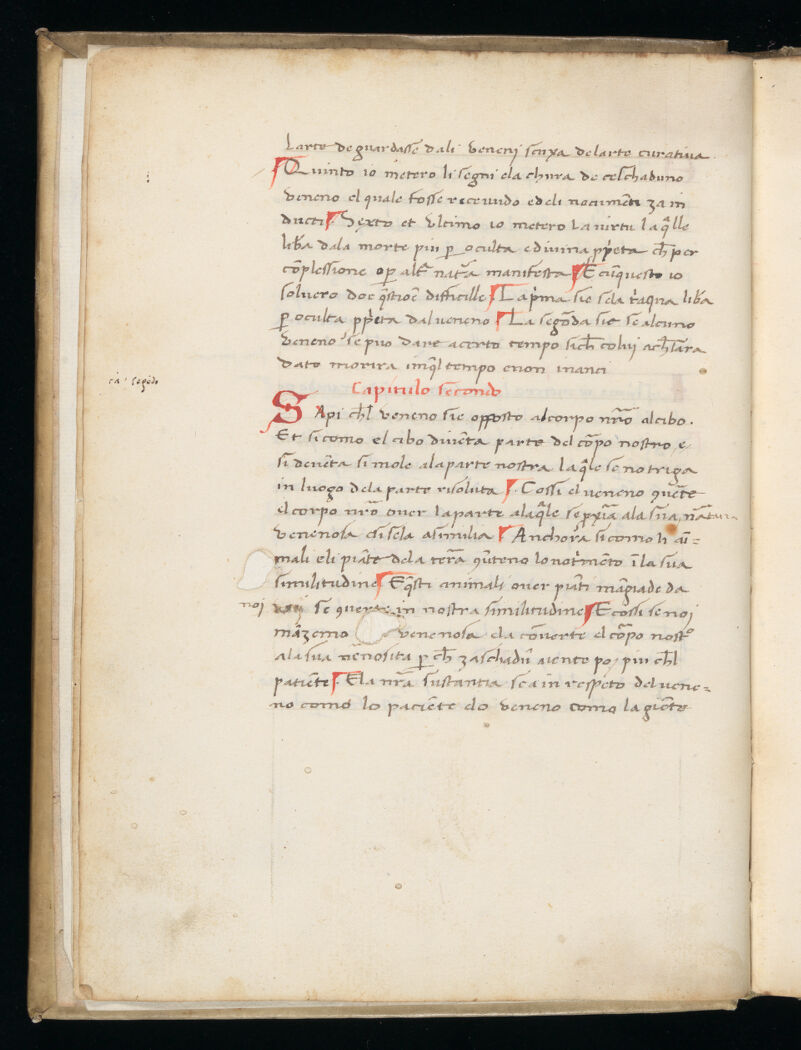 Larte de guardasse dali veneni senza delarte curativa.
Quinto io metero li segni ela chura de ceschaduno
veneno el quale fosse recevudo e deli nocumēti za in
ducti. Sexto et ultimo io metero la virtu la q̄lle
lib̄a dala morte piu p̄ oculta e divina pp̄eta ch̄ per
cōplessione o p̄ alt̄ nat̄a manifesta. E cū questo io
solvero doe q̄stioē difficille. La p̄ma sie se la t̄iaqua lib̄a
p̄ oculta pp̄eta dal veneno. La segōda sie se alcuno
veneno se puo dare a certo tempo sich̄ colui a ch̄ sara
dato morira in q̄l tempo e non inanci
ca° segōdo
Capitulo secondo
Sapi ch̄l veneno sie opposto al corpo nr̄o al cibo.
Et si como el cibo divēta parte del cōpo nostro, e
si devēta simole ala parte nostra la q̄le se notriga
in luogo de la parte risoluta. Cossi el veneno 9verte
el corpo nr̄o over la parte ala q̄le se p̄xīa ala sua natura
venenosa e si se la asimilia. Anchora si como li ani=
mali e li piāte dela tera 9verteno lo not̄mēto ī la sua
similitudine. E q̄sti animali over piāti māgiade da
noi se 9verte in nostra similitudine. E cossi se noi
māzemo venenosa ela cōverte el cōpo nost°
ala sua vēnenosita p̄ ch̄ zaschadū avento po, piu ch̄l
patiēte. E la nr̄a sustantia sea in respeto del vene=
no como lo paciēte e lo veneno como la giēte